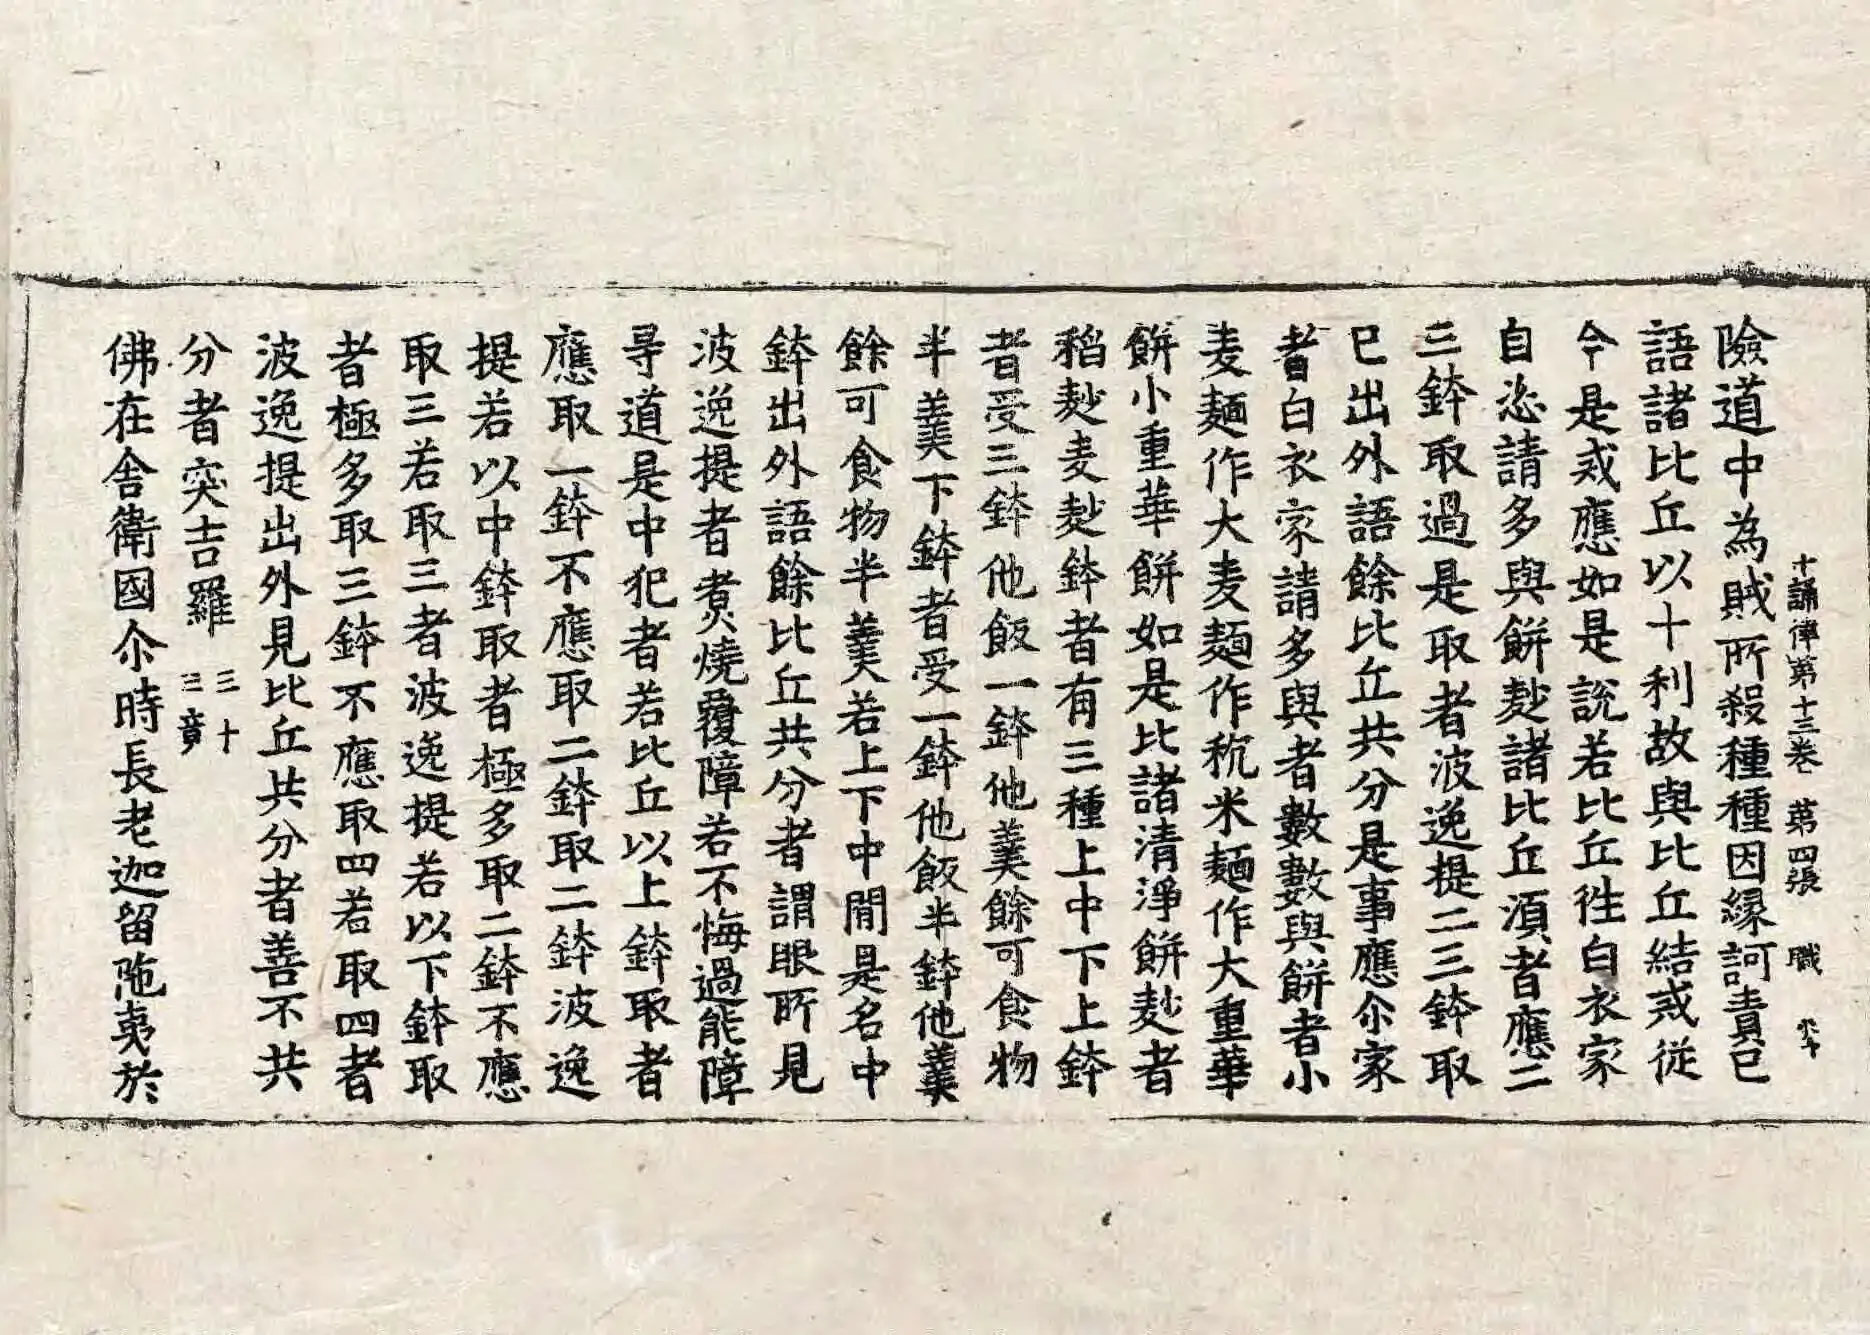 十誦律第十三卷 第四張 職
險道中為賊所殺種種因縁訶責已
語諸比丘以十利故與比丘結戒従
今是戒應如是說若比丘徃白衣家
自恣請多與餅麨諸比丘湏者應二
三鉢取過是取者波逸提二三鉢取
已出外語餘比丘共分是事應尒家
者白衣家請多與者數數與餅者小
麦麺作大麦麺作秔米麺作大重華
餅小重華餅如是比諸清淨餅麨者
稻麨麦麨鉢者有三種上中下上鉢
者受三鉢他飯一鉢他羹餘可食物
半羹下鉢者受一鉢他飯半鉢他羹
餘可食物半羹若上下中間是名中
鉢出外語餘比丘共分者謂眼所見
波逸提者煑燒覆障若不悔過能障
㝵道是中犯者若比丘以上鉢取者
應取一鉢不應取二鉢取二鉢波逸
提若以中鉢取者極多取二鉢不應
取三若取三者波逸提若以下鉢取
者極多取三鉢不應取四若取四者
波逸提出外見比丘共分者善不共
分者突吉羅 三十三竟
佛在舍衛國尒時長老迦留陁夷於